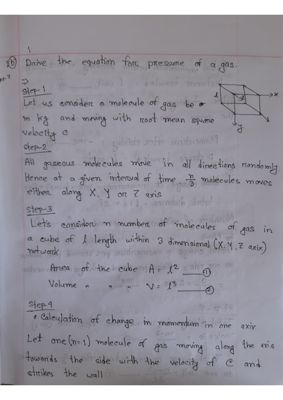 1
Q) Drive the equation for pressure of a gas.
⇒
Step-1
Let us consider a molecule of gas be
m kg and moving with root mean square
velocity c
Step-2
All gaseous molecules move in all directions randomly
Hence at a given interval of time n/3 molecules moves
either along X, Y or Z axis
Step-3
Let's consider n number of molecules of gas in
a cube of l length within 3 dimensional (X, Y, Z axix)
network
Area of the cube A = l² — ①
Volume " " " V = l³ — ②
Step-4
* Calculation of change in momentum in one axis
Let one (n=1) molecule of gas moving along the axis
towards the side with the velocity of C and
strikes the wall
l
x
y